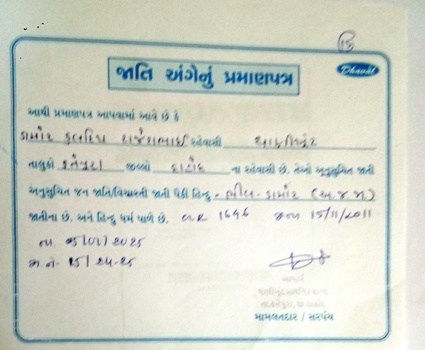 Dhwani
જાતિ અંગેનું પ્રમાણપત્ર
આથી પ્રમાણપત્ર આપવામાં આવે છે કે
ડામોર કુલદિપ રાજેશભાઈ રહેવાસી
તાલુકો ફતેપુરા જીલ્લો દાહોદ ના રહેવાસી છે. તેઓ અનુસુચિત જાતી
અનુસુચિત જન જાતિ/વિચરતી જાતી પૈકી હિન્દુ - ભીલ-ડામોર (અ.જ.જા)
જાતીના છે. અને હિન્દુ ધર્મ પાળે છે. G.R 1646 જન્મ 15/11/2011
તા. 05/01/2025
જા.નં. 15/24-25
મામલતદાર / સરપંચ